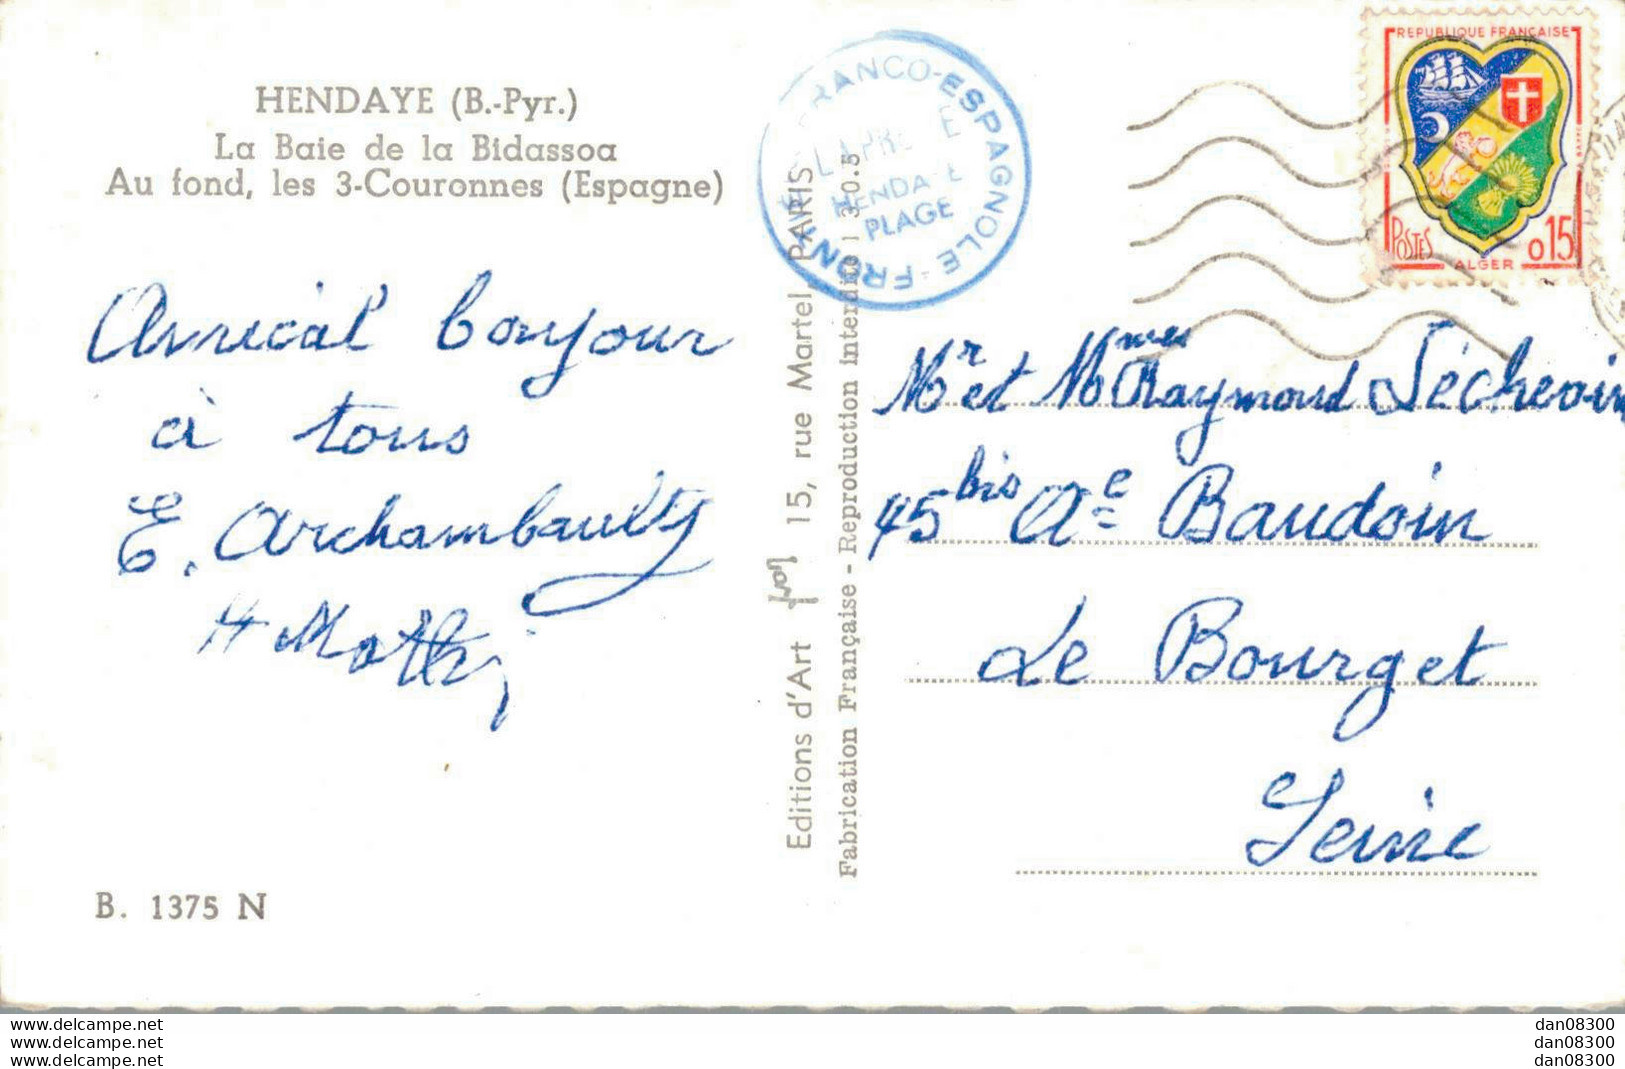 HENDAYE (B.-Pyr.)
La Baie de la Bidassoa
Au fond, les 3-Couronnes (Espagne)
Amical bonjour
à tous
E. Archambault
B. 1375 N
Editions d'Art yvon 15, rue Martel, PARIS
Fabrication Française - Reproduction interdite
FRANCO-ESPAGNOLE-FRONT
HENDAYE
PLAGE
REPUBLIQUE FRANÇAISE
POSTES
ALGER
0,15
Mr et Mmes Raymond Séchevin
45 bis Ae Baudoin
Le Bourget
Seine
www.delcampe.net
www.delcampe.net
www.delcampe.net
dan08300
dan08300
dan08300